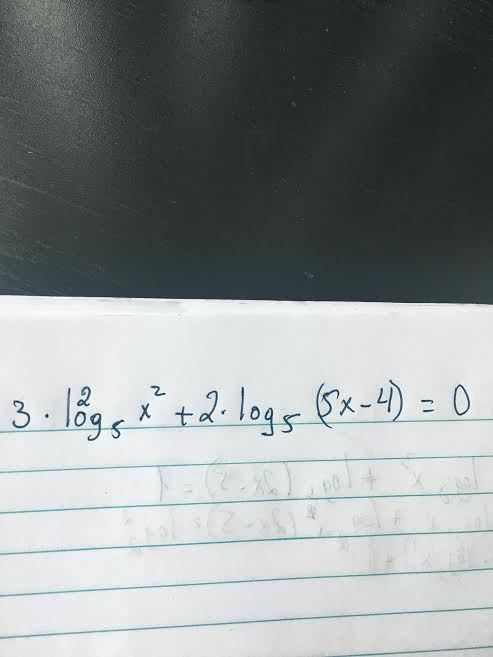 3 · log²₅ x² + 2 · log₅ (5x-4) = 0